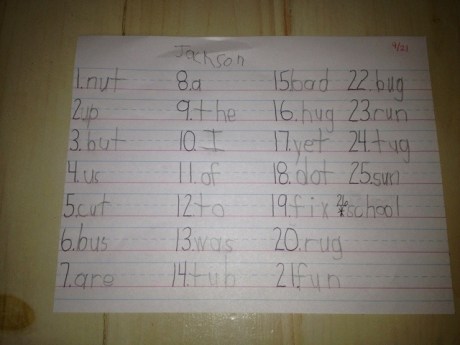 9/21
Jackson
1.nut
2.up
3.but
4.us
5.cut
6.bus
7.are
8.a
9.the
10.I
11.of
12.to
13.was
14.tub
15.bad
16.hug
17.yet
18.dot
19.fix
20.rug
21.fun
22.bug
23.run
24.tug
25.sun
26*school